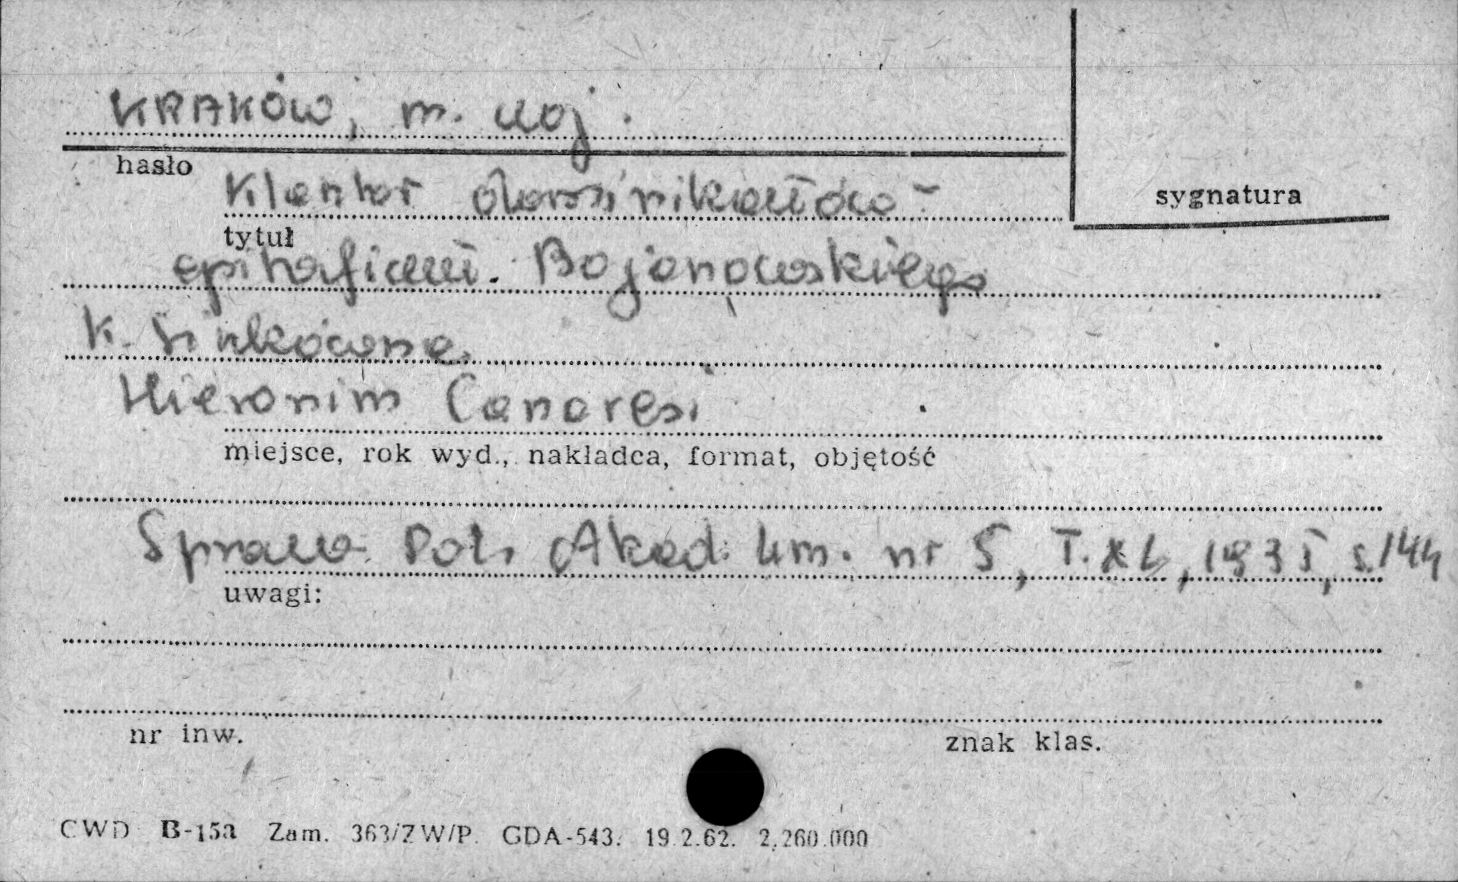 KRAKÓW, m. woj.
hasło
sygnatura
Klasztor dominikanów -
tytuł
epitafium. Bojanowskiego
K. Sinkówna,
Hieronim Canavesi
miejsce, rok wyd., nakładca, format, objętość
Spraw. Pol. Akad. Um. nr 5, T. XL, 1935, s. 144
uwagi:
nr inw.
znak klas.
CWD B-15a Zam. 363/ZW/P. GDA-543. 19.2.62. 2.260.000